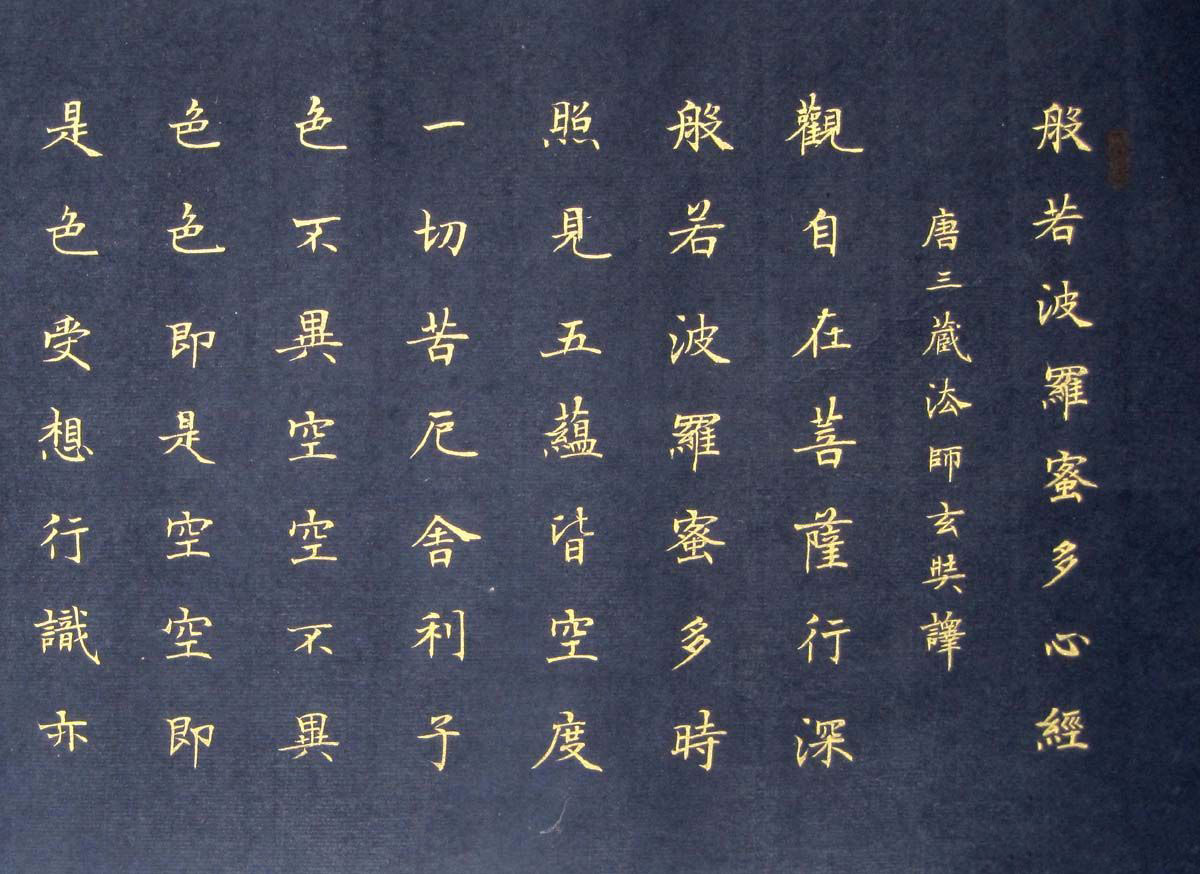 般若波羅蜜多心經
唐三藏法師玄奘譯
觀自在菩薩行深
般若波羅蜜多時
照見五蘊皆空度
一切苦厄舍利子
色不異空空不異
色色即是空空即
是色受想行識亦